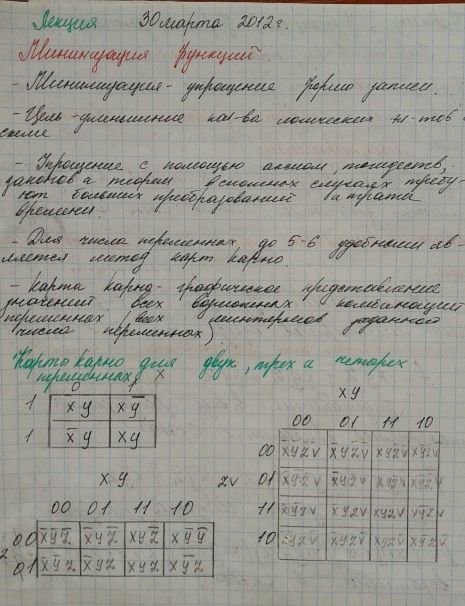 Лекция 30 марта 2012г.
Минимизация функций.
- Минимизация - упрощение формы записи.
- Цель - уменьшение кол-ва логических эл-тов в
схеме
- Упрощение с помощью аксиом, тождеств,
законов и теорем в сложных случаях требу-
ют больших преобразований и траты
времени.
- Для числа переменных до 5-6 удобным яв-
ляется метод карт карно.
- Карта карно - графическое представление
значений всех возможных комбинаций
переменных (всех минтермов заданной
числа переменных).
Карты карно для двух, трех и четырех
переменных
0 1 x
1 x y x y̅
1 x̅ y x y
x y
00 01 11 10
00
01
x y
00 01 11 10
z v
00
01
11
10